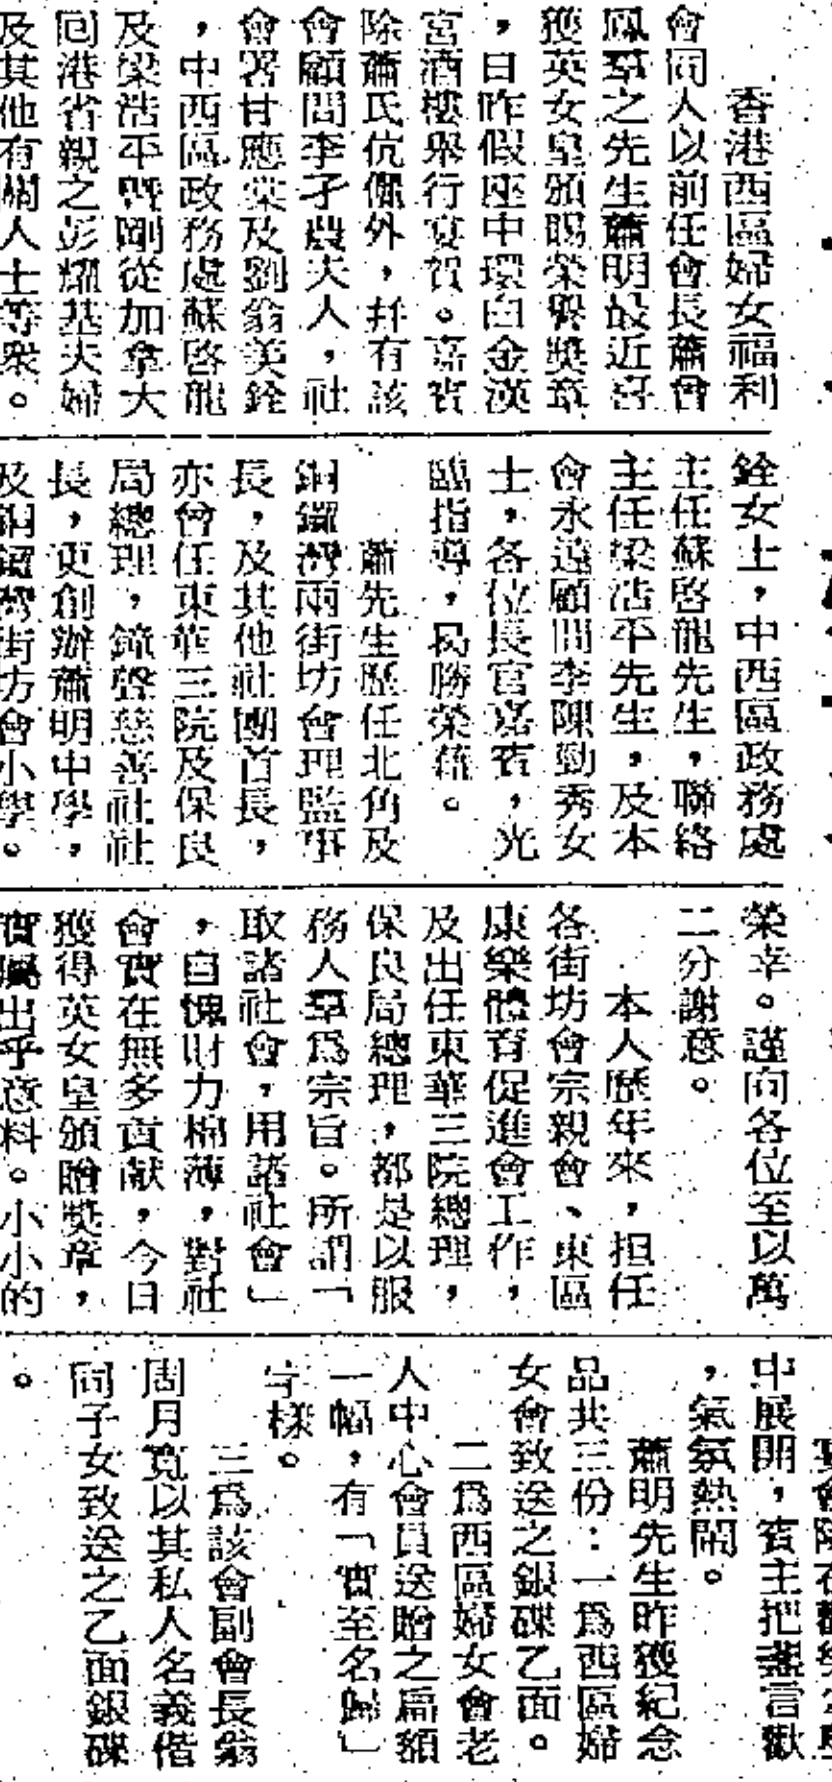 香港西區婦女福利
會同人以前任會長蕭會
鳳羣之先生蕭明最近喜
獲英女皇頒賜榮譽獎章
，日昨假座中環白金漢
宮酒樓舉行宴賀。嘉賓
除蕭氏伉儷外，幷有該
會顧問李孑農夫人，社
會署甘應棠及劉翁美銓
，中西區政務處蘇啓龍
及梁浩平暨剛從加拿大
回港省親之彭耀基夫婦
及其他有關人士等衆。
銓女士，中西區政務處
主任蘇啓龍先生，聯絡
主任梁浩平先生，及本
會永遠顧問李陳勁秀女
士，各位長官嘉賓，光
臨指導，曷勝榮藉。
蕭先生歷任北角及
銅鑼灣兩街坊會理監事
長，及其他社團首長，
亦曾任東華三院及保良
局總理，鐘聲慈善社社
長，更創辦蕭明中學，
及銅鑼灣街坊會小學。
榮幸。謹向各位至以萬
二分謝意。
本人歷年來，担任
各街坊會宗親會、東區
康樂體育促進會工作，
及出任東華三院總理，
保良局總理，都是以服
務人羣爲宗旨。所謂「
取諸社會，用諸社會」
，自愧財力棉薄，對社
會實在無多貢献，今日
獲得英女皇頒贈獎章，
實屬出乎意料。小小的
宴會隨在歡樂
中展開，賓主把盞言歡
，氣氛熱鬧。
蕭明先生昨獲紀念
品共三份：一爲西區婦
女會致送之銀碟乙面。
二爲西區婦女會老
人中心會員送贈之扁額
一幅，有「實至名歸」
字樣。
三爲該會副會長翁
周月寬以其私人名義偕
同子女致送之乙面銀碟
。